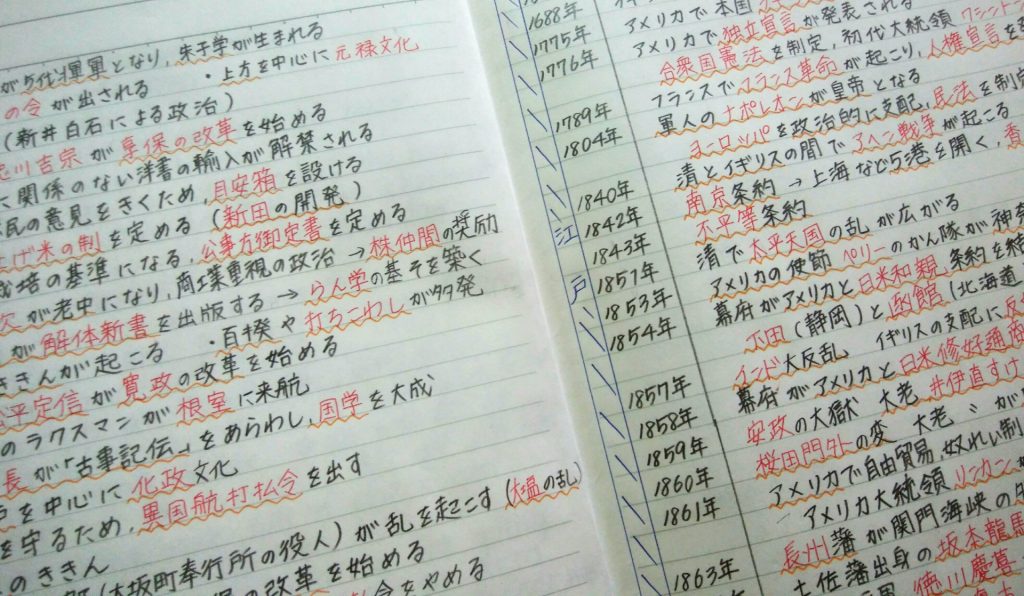 が5代将軍となり,朱子学が生まれる
の令が出される ・上方を中心に元禄文化
(新井白石による政治)
徳川吉宗が享保の改革を始める
に関係のない洋書の輸入が解禁される
民の意見をきくため,目安箱を設ける
上げ米の制を定める (新田の開発)
裁培の基準になる,公事方御定書を定める
次が老中になり,商工業重視の政治 → 株仲間の奨励
が解体新書を出版する → らん学の基そを築く
ききんが起こる ・百揆や打ちこわしが多発
松平定信が寛政の改革を始める
のラクスマンが根室に来航
長が「古事記伝」をあらわし,国学を大成
を中心に化政文化
を守るため,異国船打払令を出す
のききん
(大坂町奉行所の役人)が乱を起こす(大塩の乱)
の改革を始める
令をやめる
江
戸
1688年
1775年
1776年
1789年
1804年
1840年
1842年
1843年
1851年
1853年
1854年
1857年
1858年
1859年
1860年
1861年
1863年
イギリスで
アメリカで本国
アメリカで独立宣言が発表される
合衆国憲法を制定,初代大統領ワシントン
フランスでフランス革命が起こり,人権宣言を
軍人のナポレオンが皇帝となる
ヨーロッパを政治的に支配,民法を制定
清とイギリスの間でアヘン戦争が起こる
南京条約 → 上海など5港を開く,香
不平等条約
清で太平天国の乱が広がる
アメリカの使節ペリーのかん隊が神奈
幕府がアメリカと日米和親条約を結
下田(静岡)と函館(北海道
インド大反乱 イギリスの支配に反
幕府がアメリカと日米修好通商
安政の大獄 大老 井伊直すけ
桜田門外の変 大老 〃 が
アメリカで自由貿易・奴れい制
アメリカ大統領リンカンが
長州藩が関門海峡の
土佐藩出身の坂本龍馬
徳川慶喜